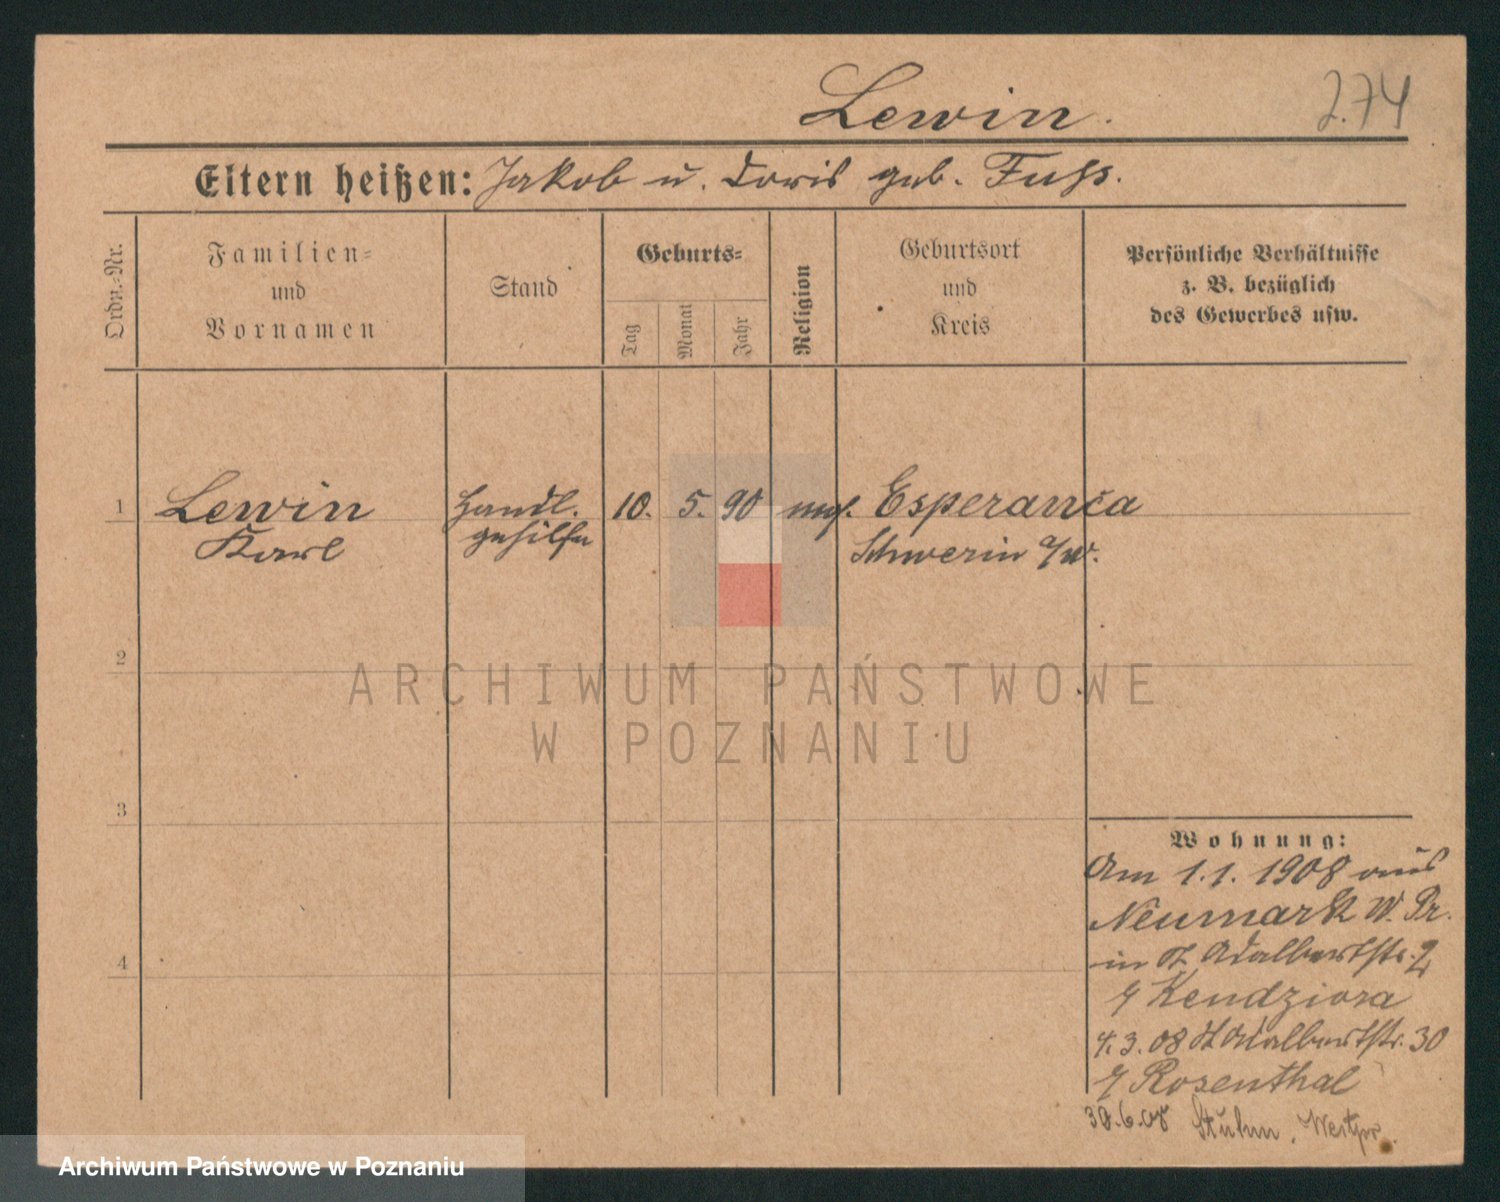 Lewin.
2.74
Eltern heißen: Jakob u. Doris geb. Fuss.
Ordn.-Nr.
Familien-
und
Vornamen
Stand
Geburts-
Tag
Monat
Jahr
Religion
Geburtsort
und
Kreis
Persönliche Verhältnisse
z. B. bezüglich
des Gewerbes usw.
1
Lewin
Karl
Handl.
gehilfe
10. 5. 90
mos.
Esperanca
Schwerin a/W.
2
ARCHIWUM PAŃSTWOWE
W POZNANIU
3
Wohnung:
Am 1.1. 1908 aus
Neumark W. Pr.
in St. Adalbertstr. 2
Kendziora
4.3.08 St. Adalbertstr. 30
Rosenthal
30.6.08 Stuhm, Westpr.
4
Archiwum Państwowe w Poznaniu